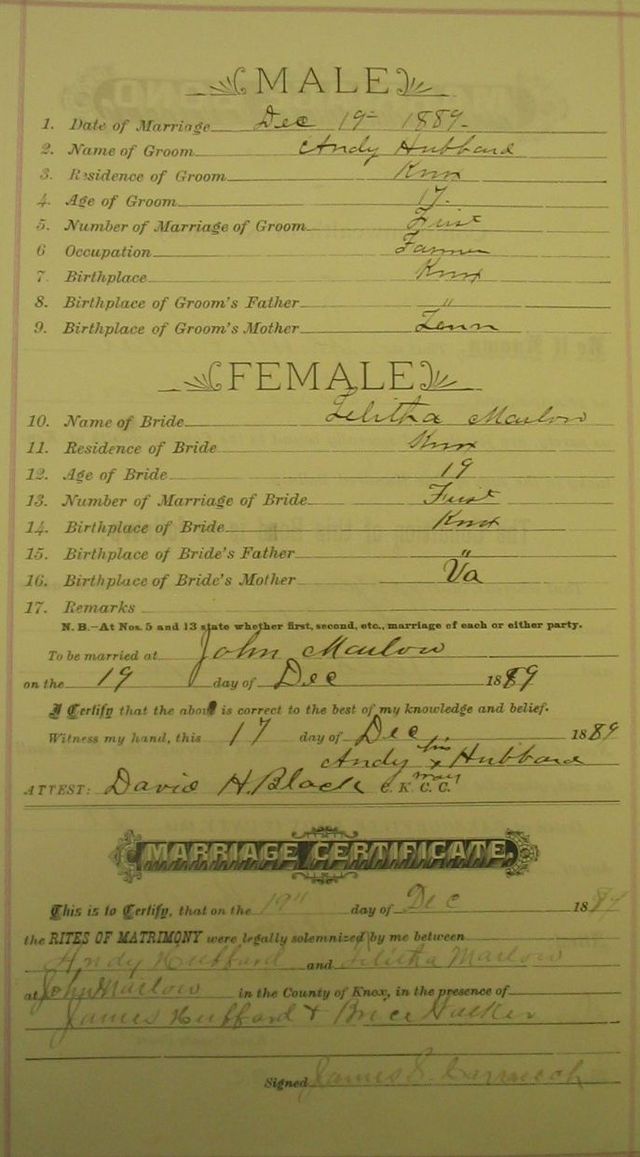 MALE
1. Date of Marriage Dec 19 1889
2. Name of Groom Andy Hubbard
3. Residence of Groom Knox
4. Age of Groom 17
5. Number of Marriage of Groom First
6 Occupation Farmer
7. Birthplace Knox
8. Birthplace of Groom's Father "
9. Birthplace of Groom's Mother Tenn
FEMALE
10. Name of Bride Telitha Marlow
11. Residence of Bride Knox
12. Age of Bride 19
13. Number of Marriage of Bride First
14. Birthplace of Bride Knox
15. Birthplace of Bride's Father "
16. Birthplace of Bride's Mother Va
17. Remarks
N. B.—At Nos. 5 and 13 state whether first, second, etc., marriage of each or either party.
To be married at John Marlow
on the 19 day of Dec 1889
I Certify that the above is correct to the best of my knowledge and belief.
Witness my hand, this 17 day of Dec 1889
Andy his x Hubbard
mark
ATTEST: David H. Black C. K. C. C.
MARRIAGE CERTIFICATE.
This is to Certify, that on the 19" day of Dec 1889
the RITES OF MATRIMONY were legally solemnized by me between
Andy Hubbard and Telitha Marlow
at John Marlow in the County of Knox, in the presence of
James Hubbard &
Signed James